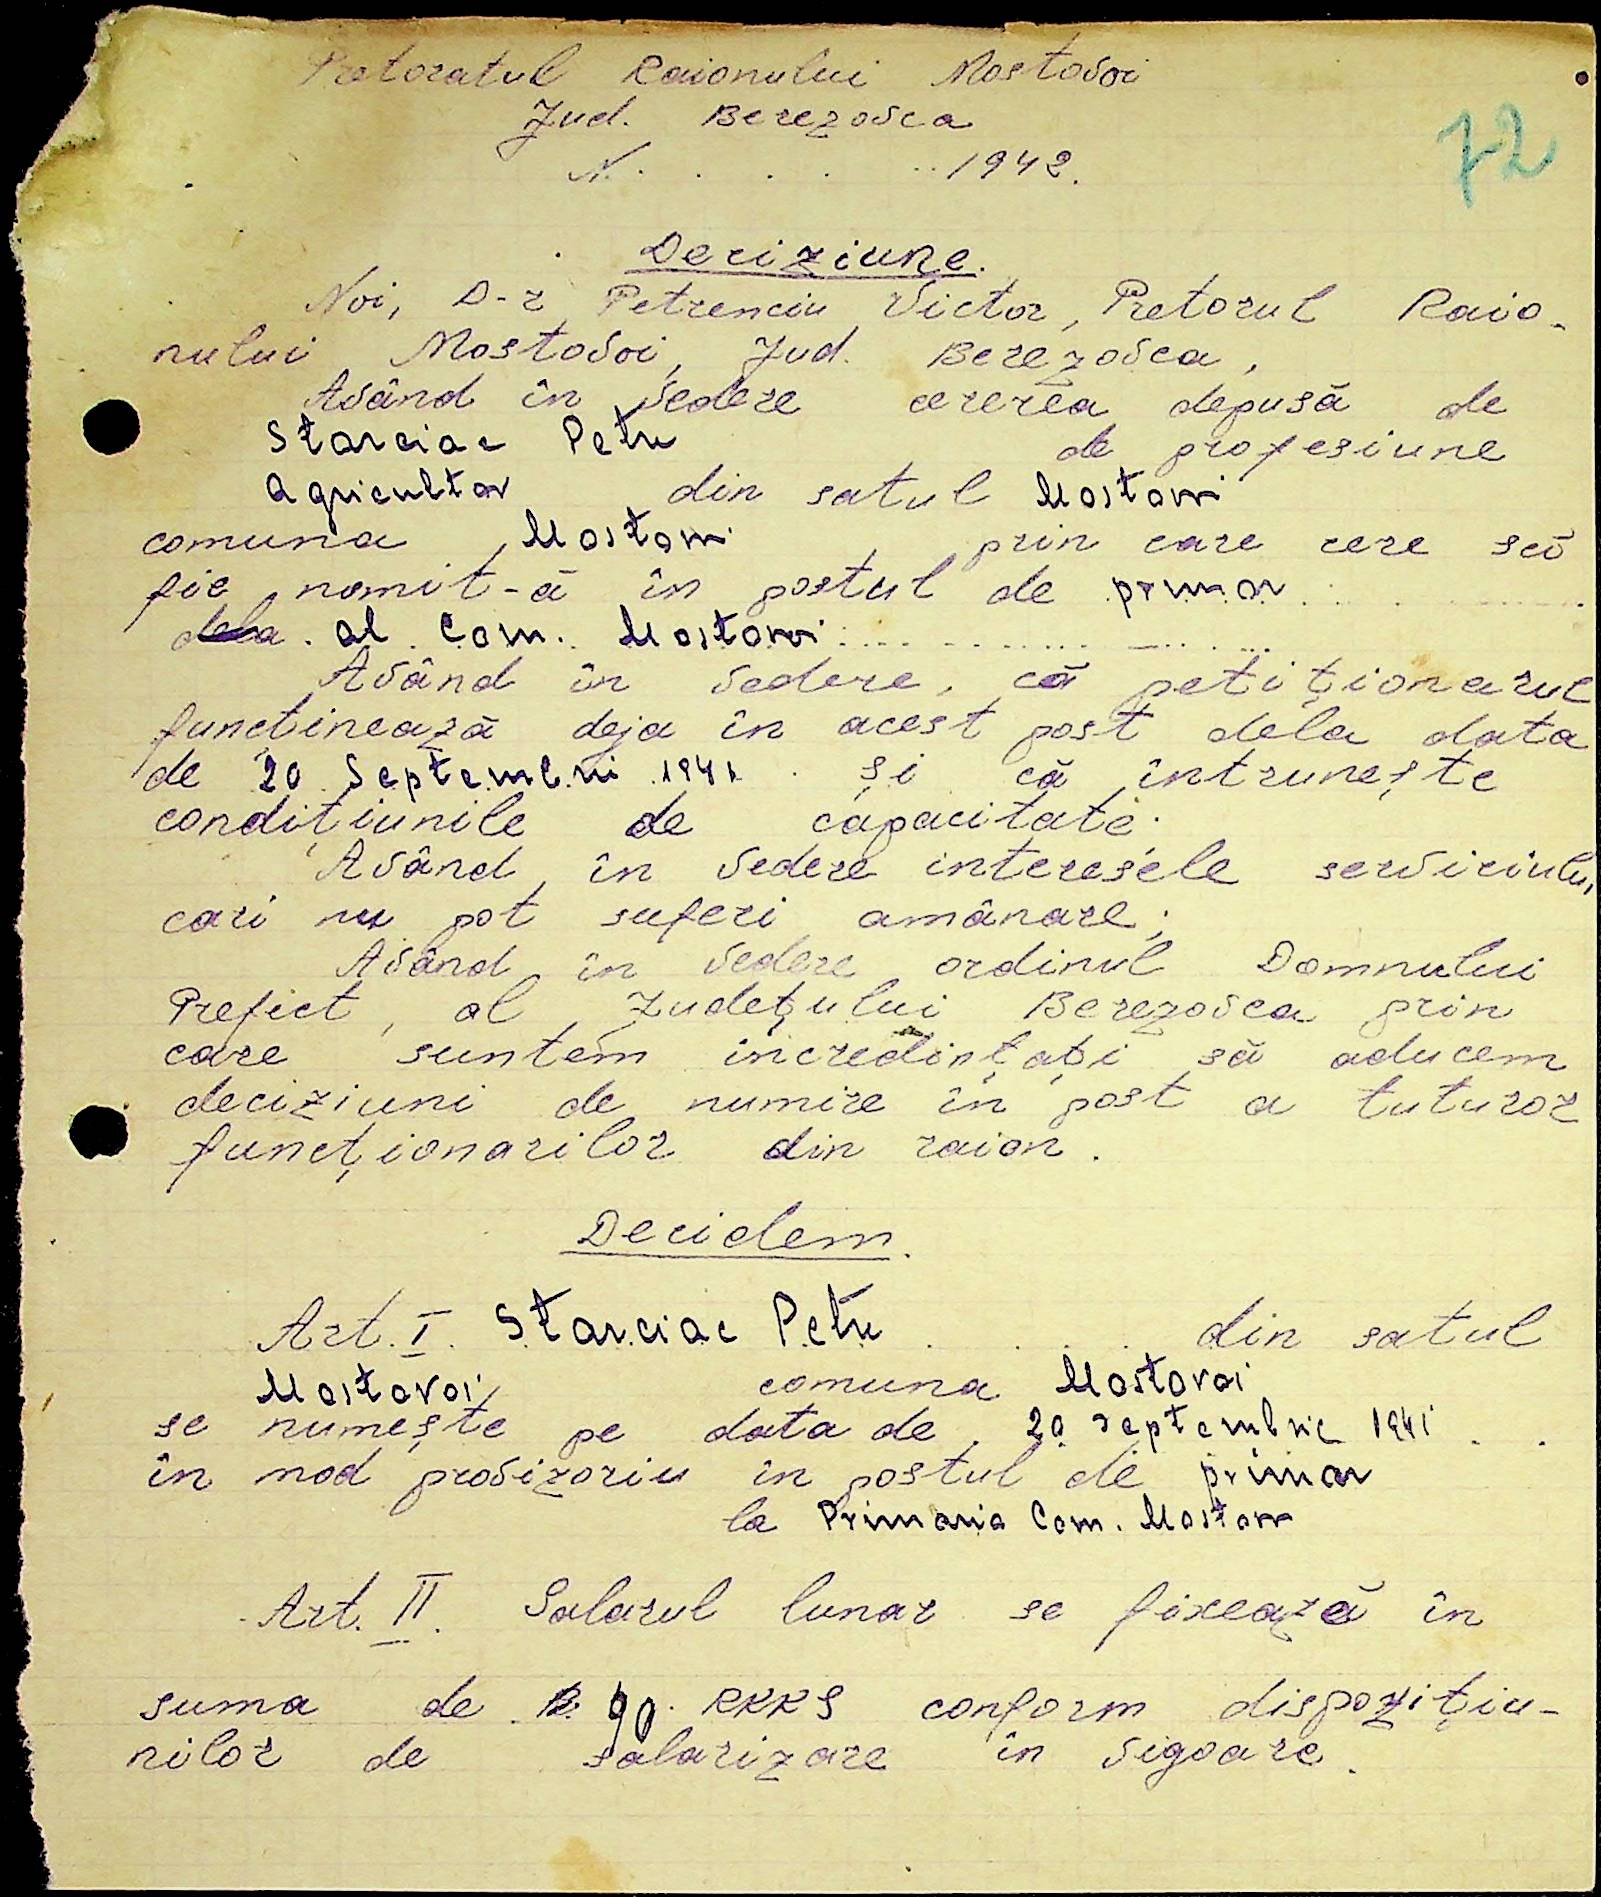 Pretoratul Raionului Mostovoi
Jud. Berezovca
N. . . . . .. 1942.
72
Deciziune.
Noi, D-r Petrenciu Victor, Pretorul Raio-
nului Mostovoi, Jud. Berezovca,
Având în vedere cererea depusă de
Starciac Petru de profesiune
Agricultor din satul Mostovoi
comuna Mostovoi prin care cere să
fie nomit-ă în postul de primar
dela al Com. Mostovoi
Având în vedere, că petiționarul
funcținează deja în acest post dela data
de 20 Septembrii 1941 și că întrunește
condițiunile de capacitate.
Având în vedere interesele serviciului,
cari nu pot suferi amânare;
Având în vedere ordinul Domnului
Prefect, al Județului Berezovca prin
care suntem incredințați să aducem
deciziuni de numire în post a tuturor
funcționarilor din raion.
Decidem.
Art. I. Starciac Petru din satul
Mostovoi comuna Mostovoi
se numește pe data de 20 septembrie 1941
în mod provizoriu în postul de primar
la Primaria Com. Mostovoi
Art. II. Salarul lunar se fixează în
suma de 90 RKKS conform dispozițiu-
nilor de salarizare în vigoare.